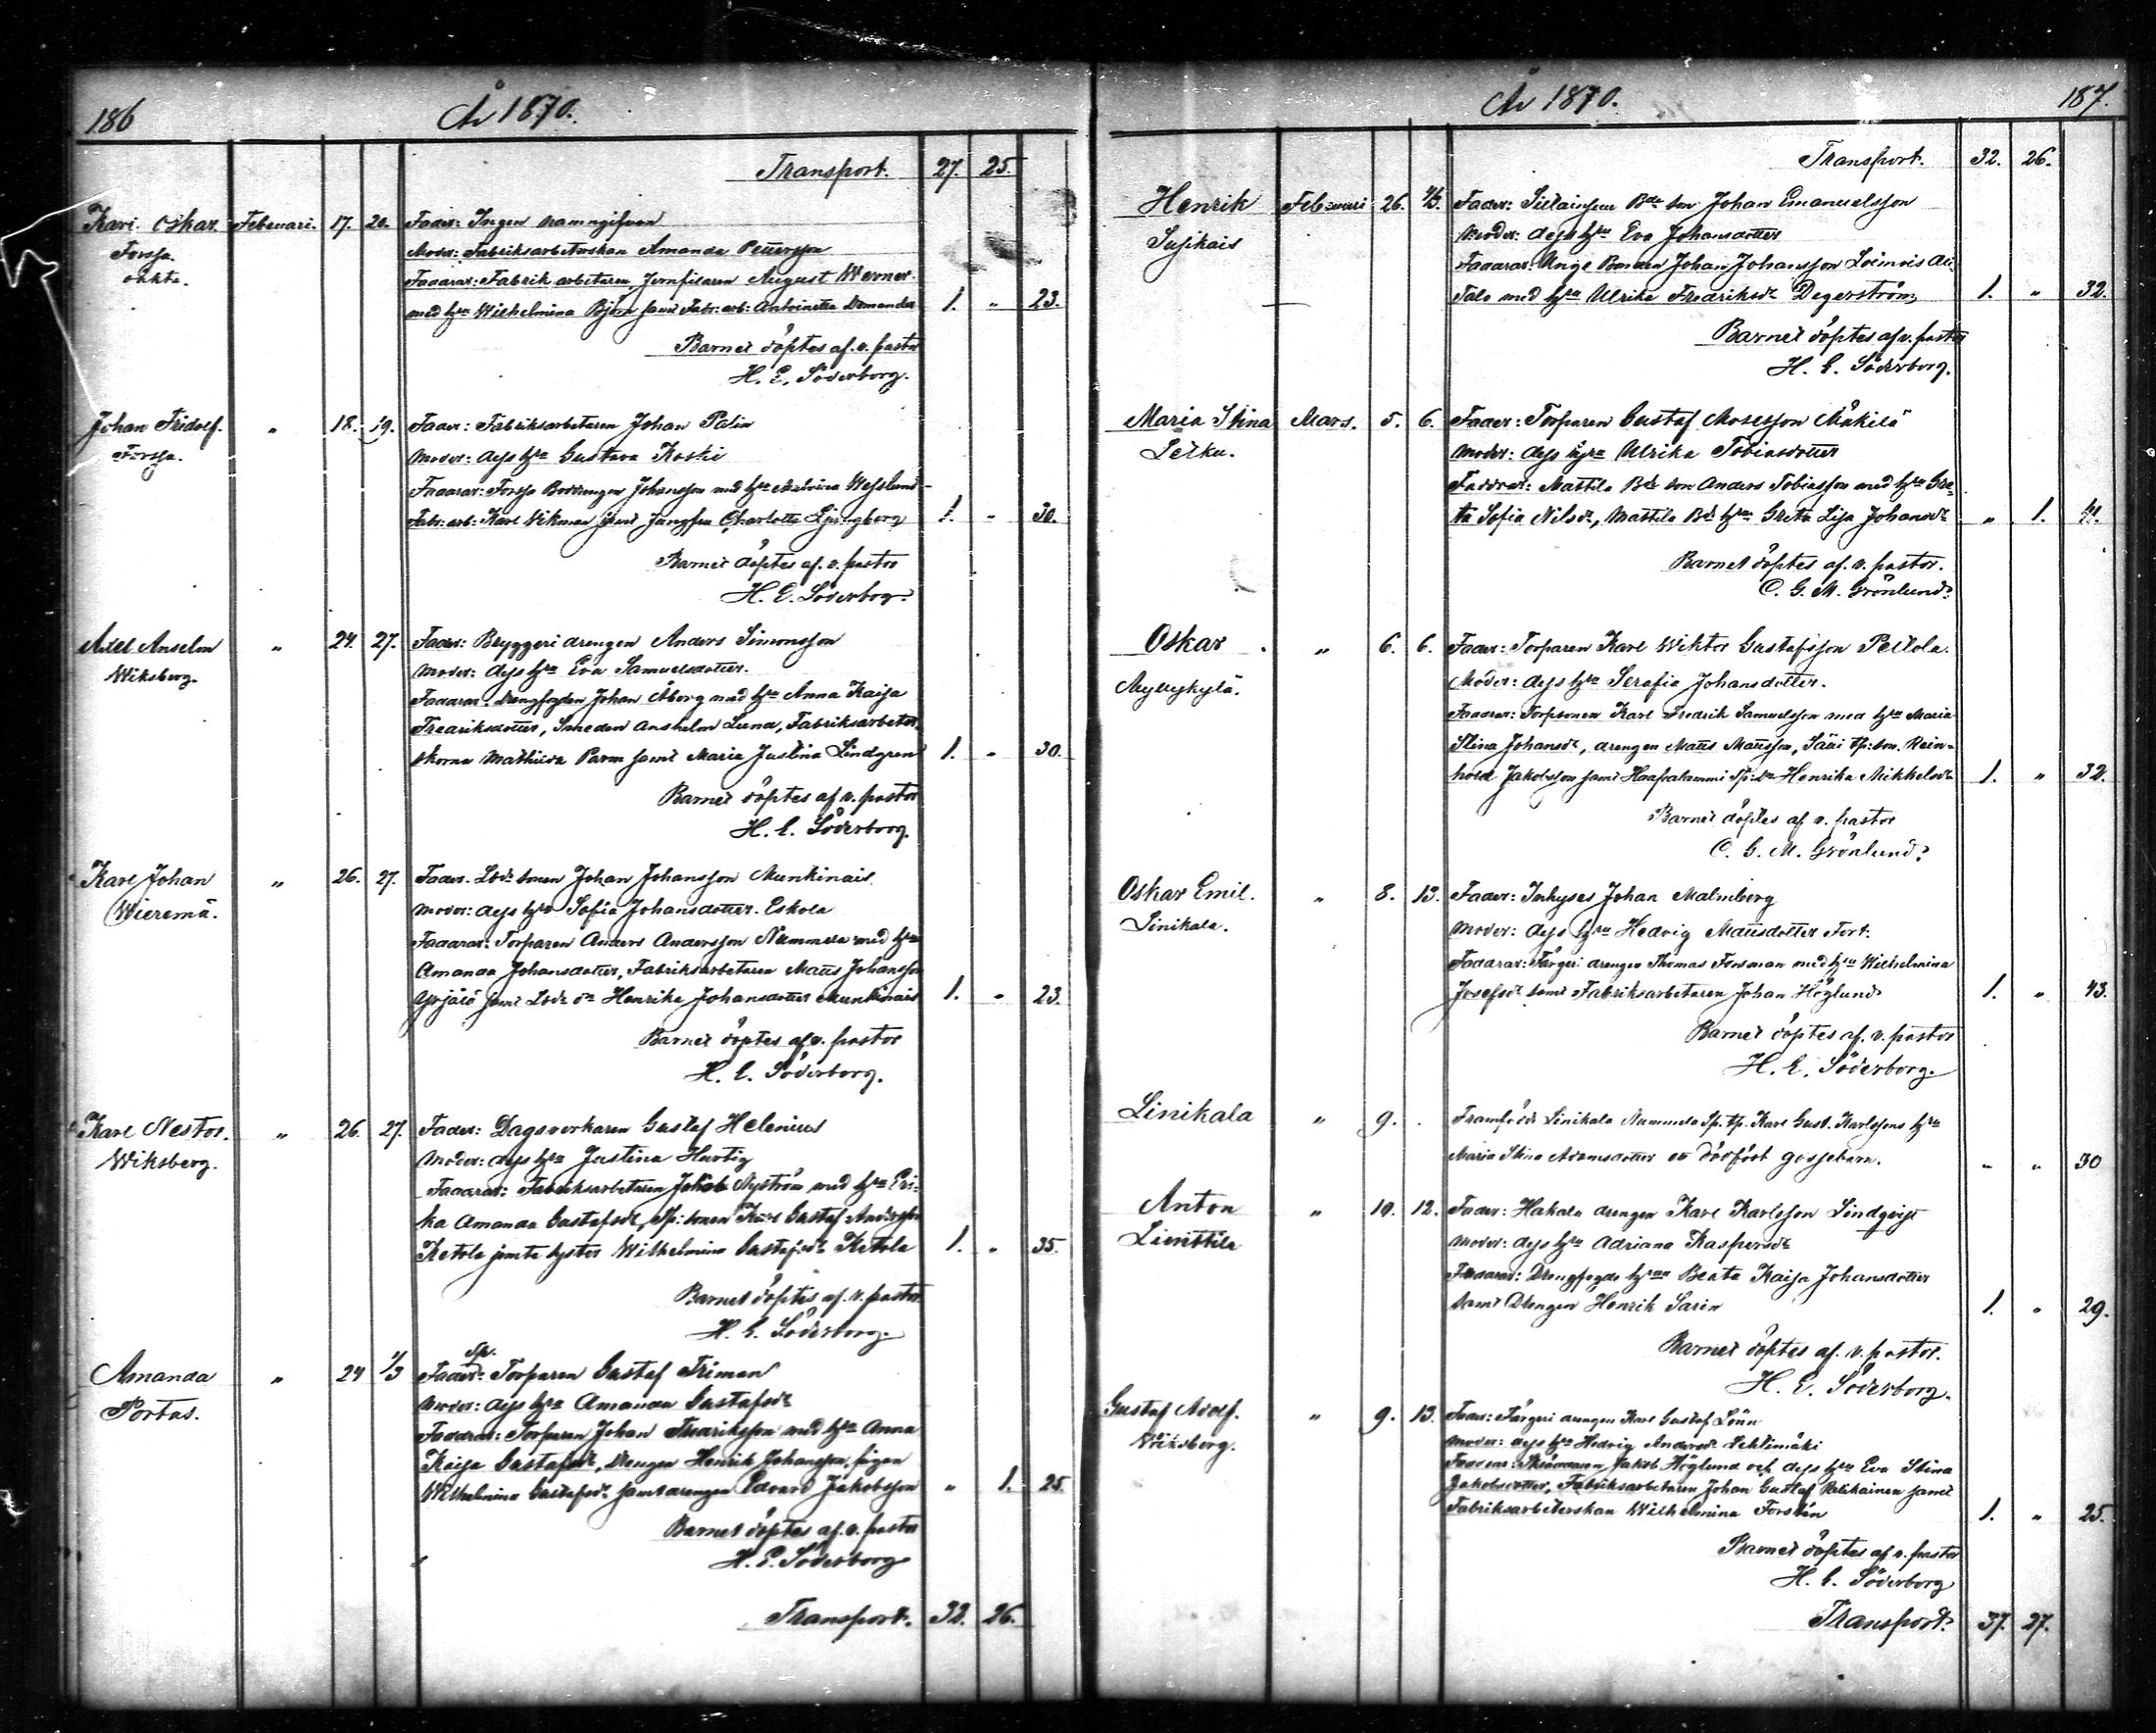 186
År 1870.
Transport. 27. 25.
Karl Oskar Februari. 17. 20. Fader: Ingen namngifven
Forssa. Moder: Fabriksarbeterskan Amanda Pettersson
oäkta. Faddrar: Fabrik arbetaren, Jernfilaren August Werner
med hu Wilhelmina Björn samt Fabr: arb: Antoinetta 1. " 23.
Barnet döptes af. v. pastor
H. E. Söderborg.
Johan Fridolf. " 18. 19. Fader: Fabriksarbetaren Johan Palin
Forssa. Moder: dess hu Gustava Koski
Faddrar: Forssa Johansson med hu
Fabr: arb: Karl Vikman samt Jungfru Charlotta Ljungberg 1. " 30.
Barnet döptes af. v. pastor
H. E. Söderborg.
Axel Anselm " 24. 27. Fader: Bryggeri drengen Anders Simonsson
Wiksberg. Moder: dess hu Eva Samuelsdotter.
Faddrar: Drengfogden Johan Åberg med hu Anna Kaisa
Fredriksdotter, Smeden Anshelm Lund, Fabriksarbeter-
skorna Mathilda Parm samt Maria Justina Lindgren 1. " 30.
Barnet döptes af v. pastor
H. E. Söderborg.
Karl Johan " 26. 27. Fader. Ldb: sonen Johan Johansson Munkinais
Wieremä. Moder: dess hu Sofia Johansdotter Eskola
Faddrar: Torparen Anders Andersson Nummela med hu
Amanda Johansdotter, Fabriksarbetaren Matts Johansson
samt Henrika Johansdotter Munkinais 1. " 23.
Barnet döptes af v. pastor
H. E. Söderborg.
Karl Nestor. " 26. 27. Fader: Dagsverkaren Gustaf Helenius
Wiksberg. Moder: dess hu Justina Hurtig
Faddrar: Fabriksarbetaren Jakob Nyström med hu Eri-
ka Amanda Gustafsdr, Sp: sonen Karl Gustaf Andersson
Ketola jemte syster Wilhelmina Gustafsdr Ketola 1. " 35.
Barnet döptes af. v. pastor
H. E. Söderborg.
Amanda " 24 1/3 Fader: Sp. Torparen Gustaf Friman
Portas. Moder: dess hu Amanda Gustafsdr
Faddrar: Torparen Johan Fredriksson med hu Anna
Kaisa Gustafsdr, Drengen Henrik Johansson, pigan
Wilhelmina Gustafsdr samt drengen Edvard Jakobsson " 1. 25.
Barnet döptes af. v. pastor
H. E. Söderborg
Transport. 32. 26.
År 1870.
187.
Transport. 32. 26.
Henrik Februari 26. 4/3. Fader: Bde son Johan Emanuelsson
Susikais Moder: dess hu Eva Johansdotter
Faddrar: Unge Bonden Johan Johansson Loimois Ali-
Talo med hu Ulrika Fredriksdr Degerström 1. " 32.
Barnet döptes af v. pastor
H. E. Söderborg.
Maria Stina Mars. 5. 6. Fader: Torparen Gustaf Mosesson Mäkilä
Leiku. Moder: dess hu Ulrika Tobiasdotter
Faddrar: Mattila Bde son Anders Tobiasson med hu Gre-
ta Sofia Nilsdr, Mattila Bde hu Greta Lisa Johansdr " 1. 41.
Barnet döptes af. v. pastor.
C. G. M. Grönlund.
Oskar " 6. 6. Fader: Torparen Karl Wiktor Gustafsson Pellola.
Myllykylä. Moder: dess hu Serafia Johansdotter.
Faddrar: Torpsonen Karl Fredrik Samuelsson med hu Maria
Stina Johansdr, drengen Matts Mattsson, Säri tp: son. Rein-
hold Jakobsson samt Haapakammi Sp: dr Henrika Mikkelsdr 1. " 32.
Barnet döptes af v. pastor
C. G. M. Grönlund.
Oskar Emil. " 8. 13. Fader: Inhyses Johan Malmberg
Linikala. Moder: dess hu Hedvig Mattsdotter Fort.
Faddrar: Färgeri drengen Thomas Forsman med hu Wilhelmina
Josefsdr samt Fabriksarbetaren Johan Höglund 1. " 43.
Barnet döptes af. v. pastor
H. E. Söderborg.
Linikala " 9. Framfödde Linikala Nummela Sp. tp. Karl Gust. Karlssons hu
Maria Stina Adamsdotter ett dödfödt gossebarn. " " 30
Anton " 10. 12. Fader: Hakala drengen Karl Karlsson Lindqvist
Lienttilä Moder: dess hu Adriana Kaspersdr
Faddrar: Drengfogde hu Beata Kaisa Johansdotter
samt Drengen Henrik Sarin 1. " 29.
Barnet döptes af. v. pastor.
H. E. Söderborg.
Gustaf Adolf. " 9. 13. Fader: Färgeri drengen Karl Gustaf Lönn
Wiksberg. Moder: dess hu Hedvig Andersdr Lehtimäki
Faddrar: Jakob Höglund och dess hu Eva Stina
Jakobsdotter, Fabriksarbetaren Johan Gustaf Palikainen samt
Fabriksarbeterskan Wilhelmina Forstén 1. " 25.
Barnet döptes af v. pastor
H. E. Söderborg
Transport. 37. 27.